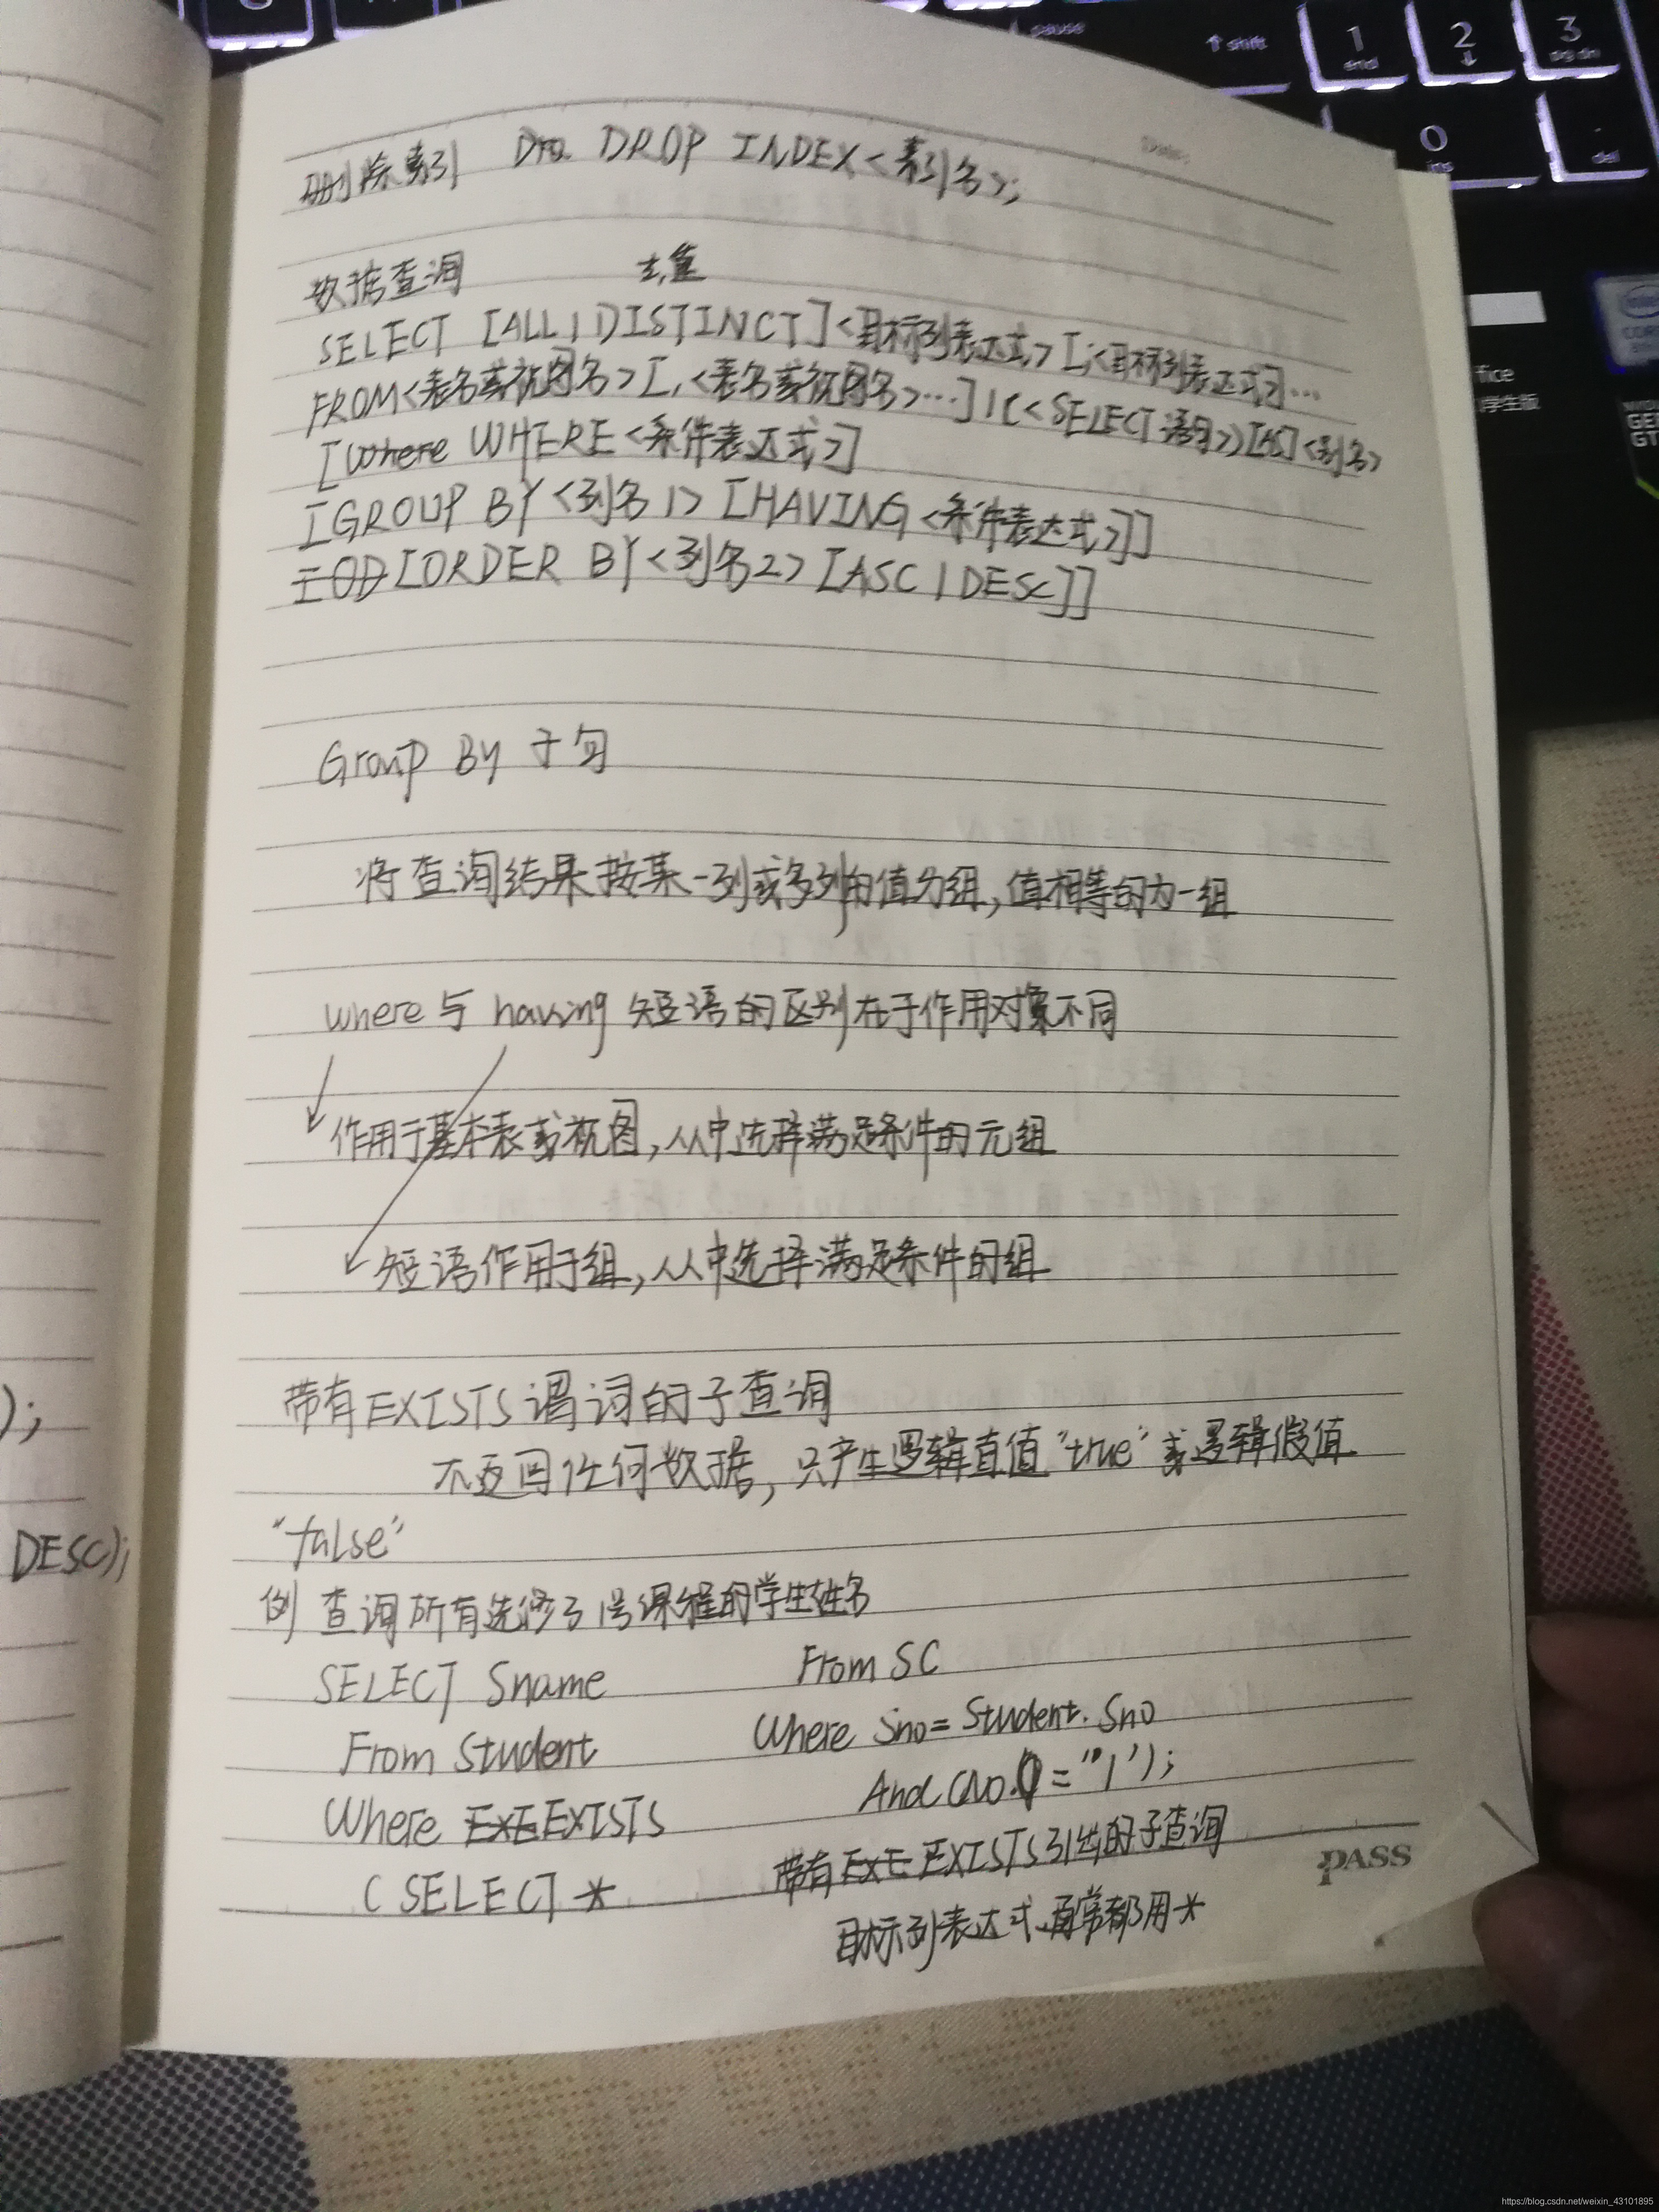 pause
↑ shift
1
end
2
↓
3
pg dn
0
ins
.
del
intel
CORE
fice
学生版
GE
GT
Date:
删除索引 Dro DROP INDEX<索引名>;
数据查询 去重
SELECT [ALL|DISTINCT]<目标列表达式>[,<目标列表达式>]…
FROM<表名或视图名>[,<表名或视图名>…]|(<SELECT语句>)[AS]<别名>
[where WHERE<条件表达式>]
[GROUP BY<列名1>[HAVING<条件表达式>]]
[ORDER BY<列名2>[ASC|DESC]]
Group By 子句
将查询结果按某一列或多列的值分组,值相等的为一组
where与having 短语的区别在于作用对象不同
作用于基本表或视图,从中选择满足条件的元组
短语作用于组,从中选择满足条件的组
带有EXISTS谓词的子查询
不返回任何数据,只产生逻辑真值"true"或逻辑假值
"false"
例 查询所有选修了1号课程的学生姓名
SELECT Sname
From Student
Where EXISTS
(SELECT *
From SC
Where Sno=Student.Sno
And Cno.="1');
带有EXISTS引出的子查询
目标列表达式通常都用*
);
DESC);
PASS
https://blog.csdn.net/weixin_43101895